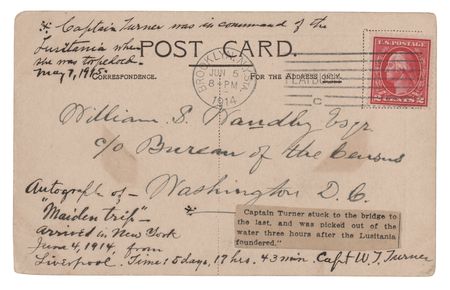 ※ Captain Turner was in command of the
Lusitania when
she was torpedoed.
May 7, 1915.
POST CARD.
CORRESPONDENCE.
FOR THE ADDRESS ONLY.
BROOKLYN, N.Y.
JUN 5
8-PM
1914
C
U.S. POSTAGE
2 CENTS 2
William S.
c/o Bureau of the Census
Washington D.C.
Autograph of -
"Maiden trip" -
arrived in New York
June 4, 1914, from
Liverpool. Time: 5 days, 17 hrs. 43 min. Capt W. T. Turner
Captain Turner stuck to the bridge to
the last, and was picked out of the
water three hours after the Lusitania
foundered."